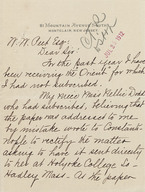 81 Mountain Avenue
Montclair New Jersey
W. W. Peet Esq:
Dear Sir
In the past year I have
been receiving the Orient for which
I had not subscribed.
My niece Miss Nellie
who had subscribed, believing that
the paper was addressed to me
by mistake wrote to Constan-
ople to rectify the matter
asking to have it sent directly
to her at Holyoke College So-
Hadley Mass. As the paper